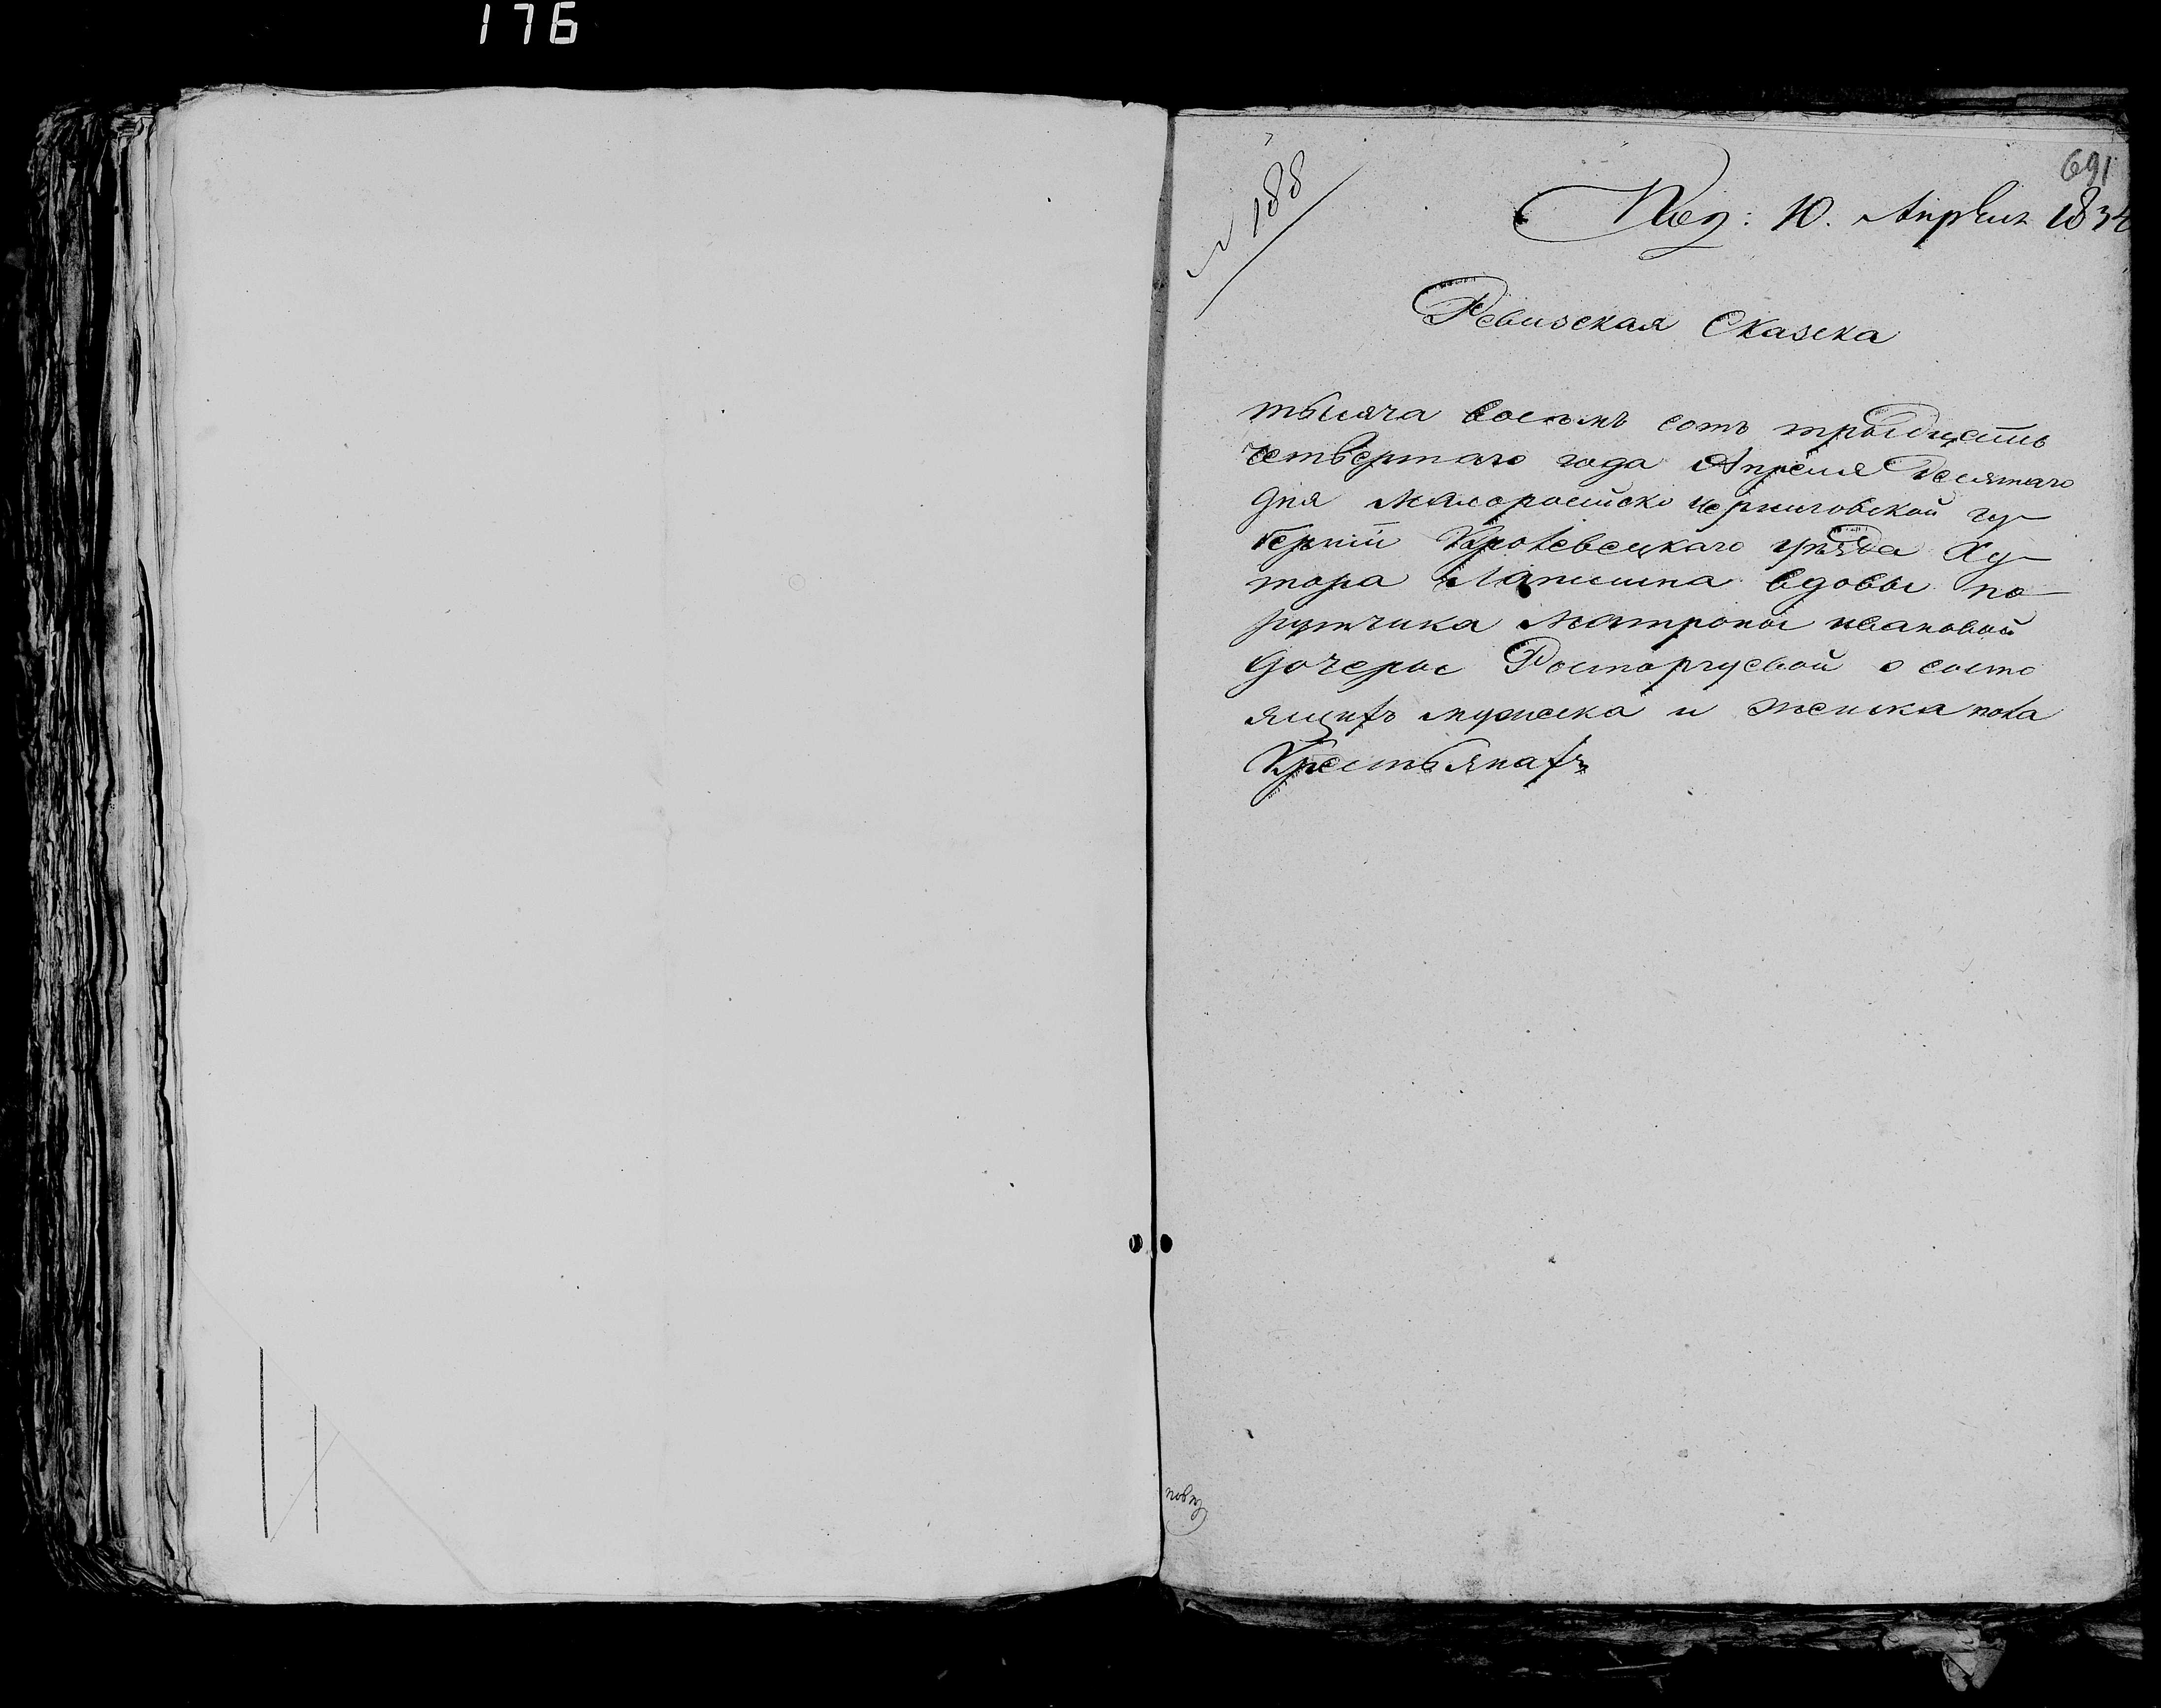 176
691
N 188
Пол: 10. Апреля 1834
Ревиская Сказска
тысяча восемъ сотъ трыдцать
четвертаго года Апреля Десятаго
дня Малоросийско черниговской гу-
берніи Кролевецкаго уезда Ху-
тора Лапшина вдовы по-
рутчика Матроны ивановой
дочеры Росторгуевой о состо
ящихъ мужеска и женска пола
Крестьянахъ